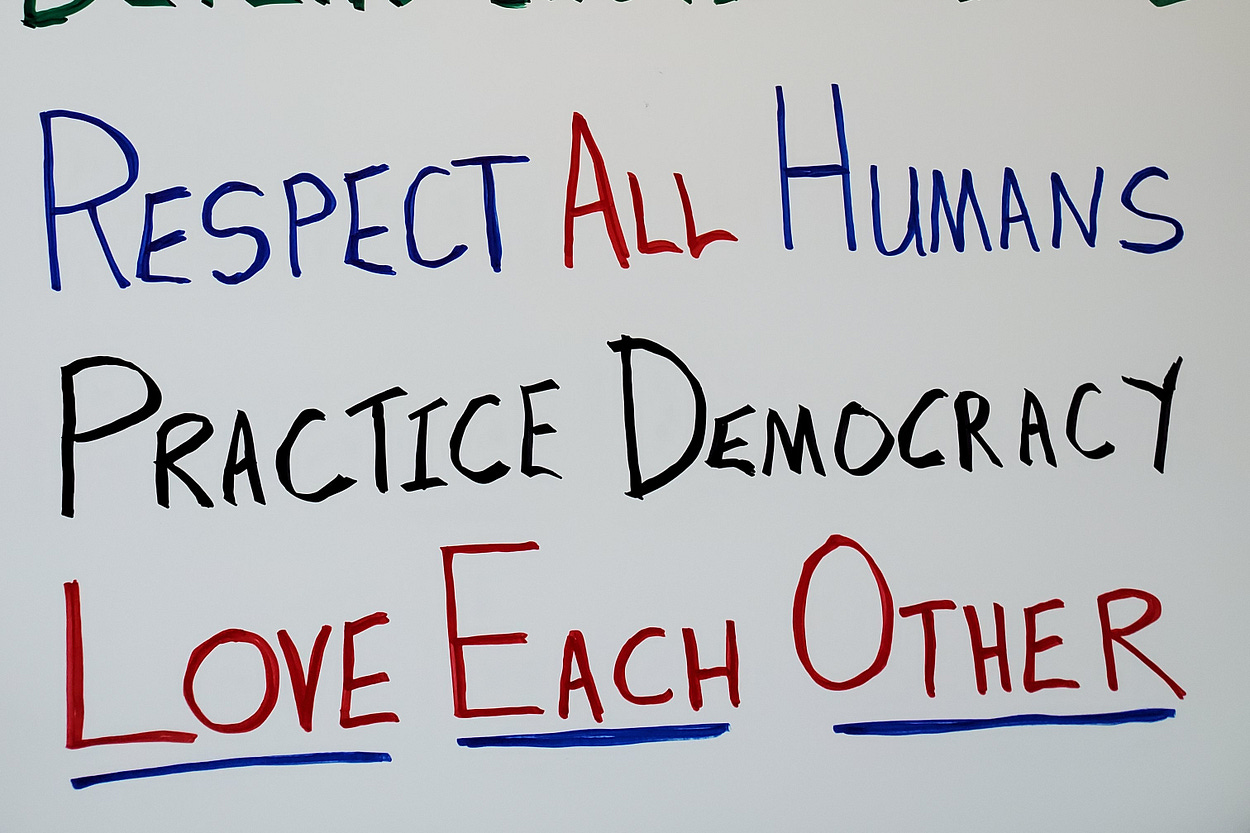 RESPECT ALL HUMANS
PRACTICE DEMOCRACY
LOVE EACH OTHER